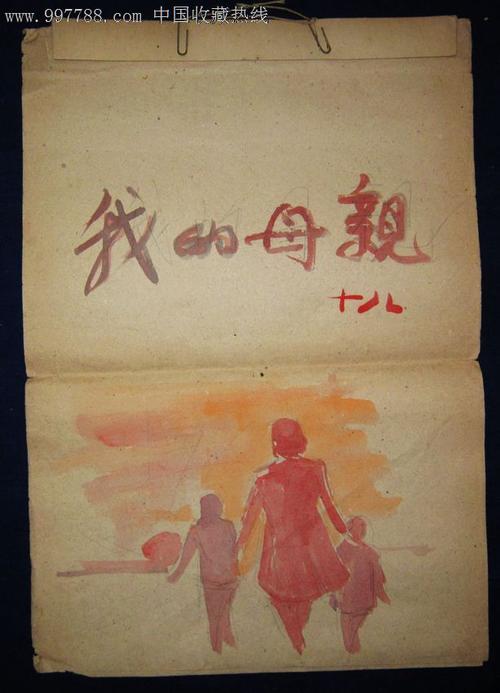 www.997788.com 中国收藏热线
我的母親
十八